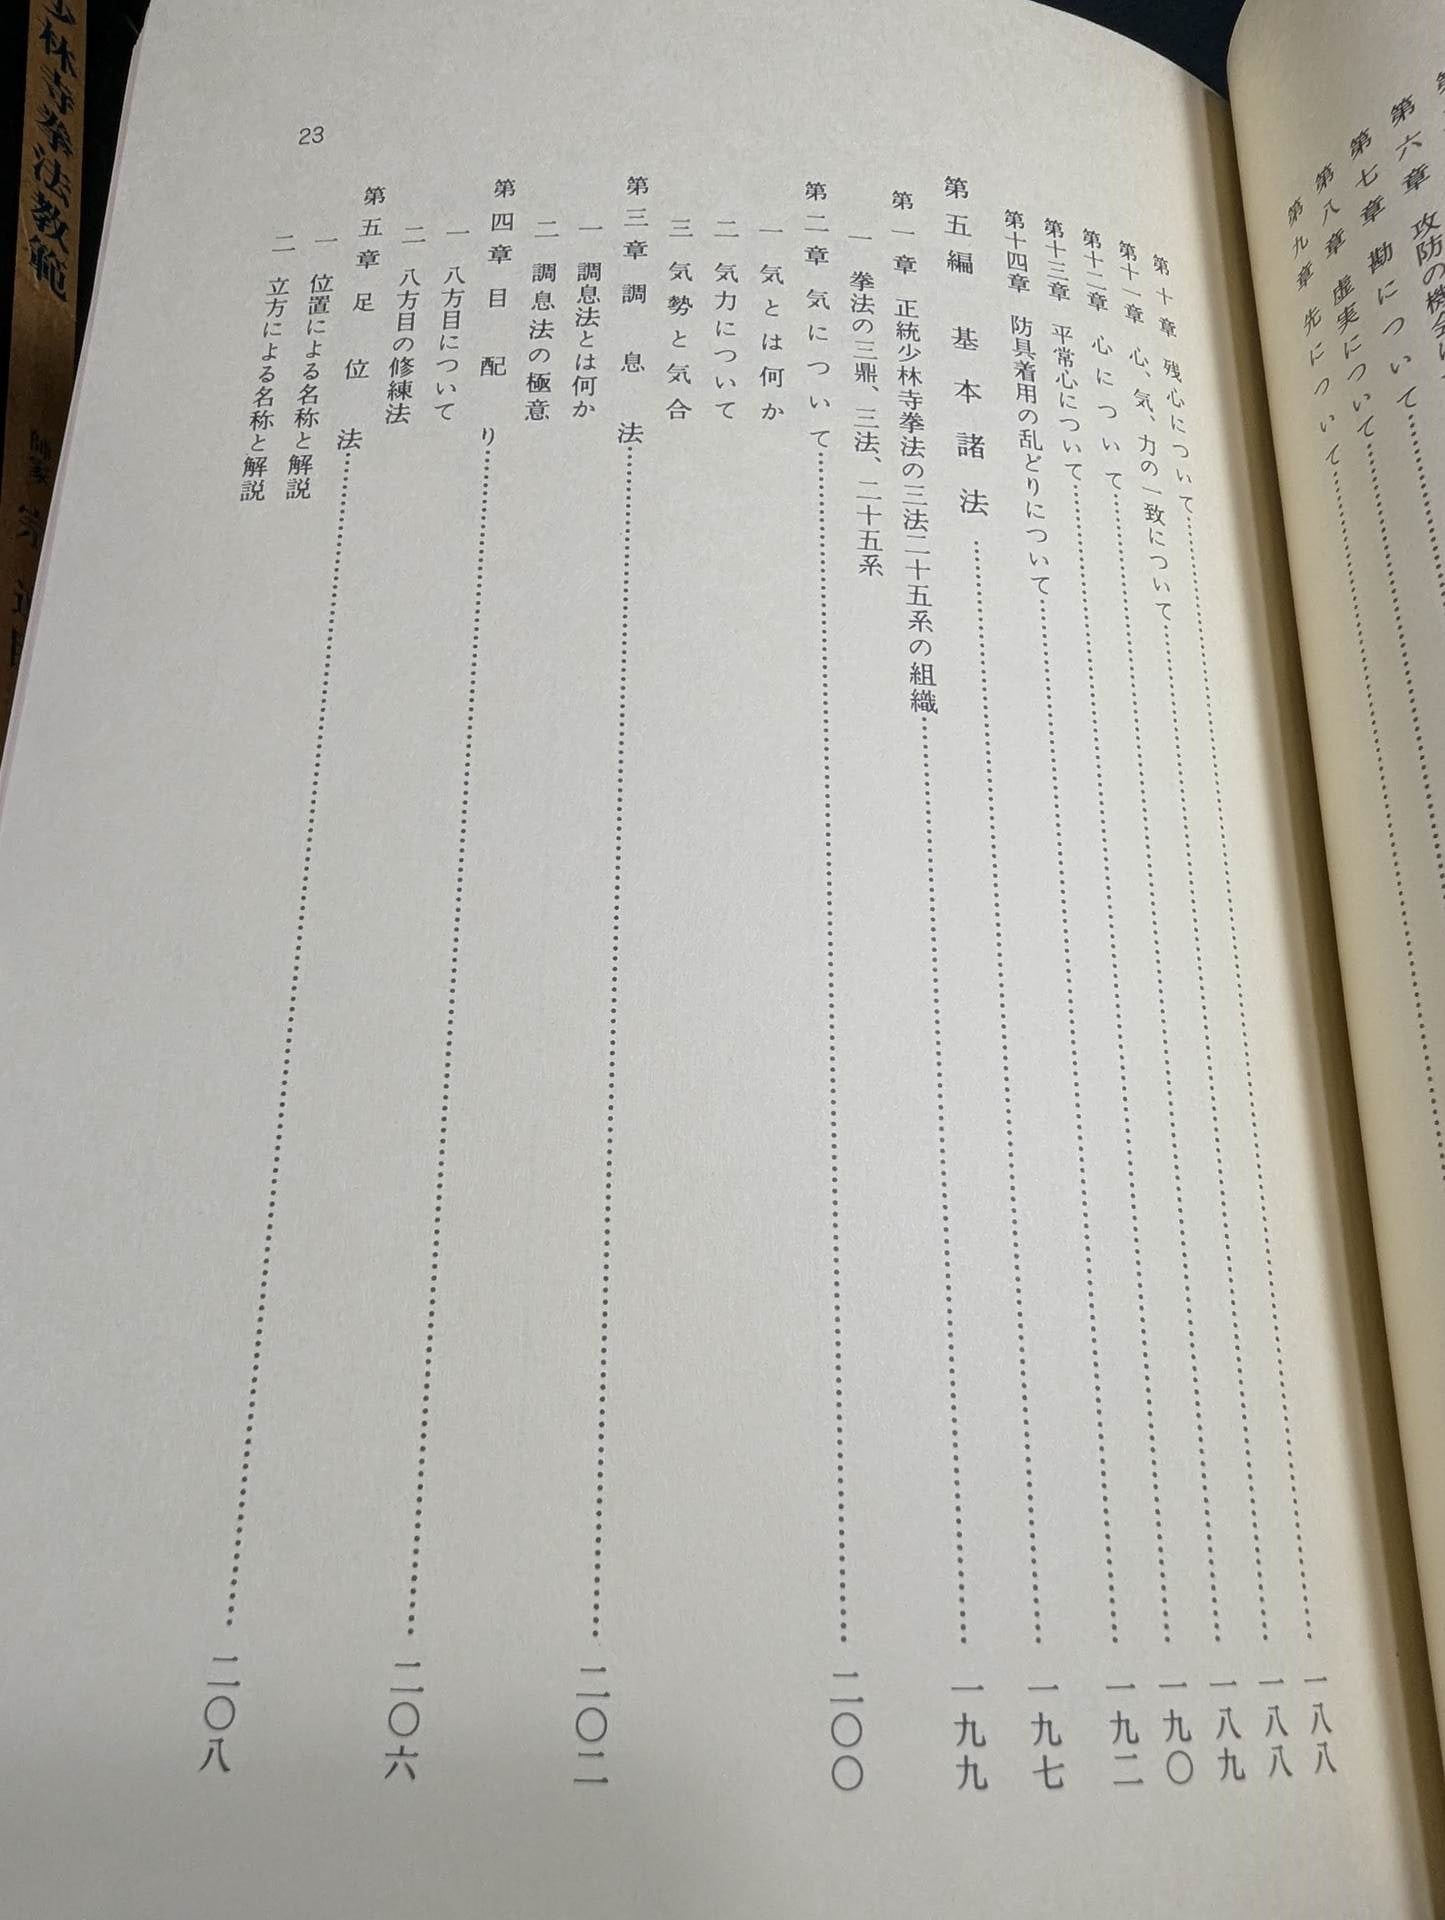 林寺拳法教範
第六章 攻防の機会
第七章 勘について
第八章 虚実について
第九章 先について
第十章 残心について 一八八
第十一章 心、気、力の一致について 一八八
第十二章 心について 一八九
第十三章 平常心について 一九〇
第十四章 防具着用の乱どりについて 一九二
第五編 基本諸法 一九七
第一章 正統少林寺拳法の三法二十五系の組織 一九九
一 拳法の三鼎、三法、二十五系
第二章 気について 二〇〇
一 気とは何か
二 気力について
三 気勢と気合
第三章 調息法 二〇二
一 調息法とは何か
二 調息法の極意
第四章 目配り 二〇六
一 八方目について
二 八方目の修練法
第五章 足位法 二〇八
一 位置による名称と解説
二 立方による名称と解説
23